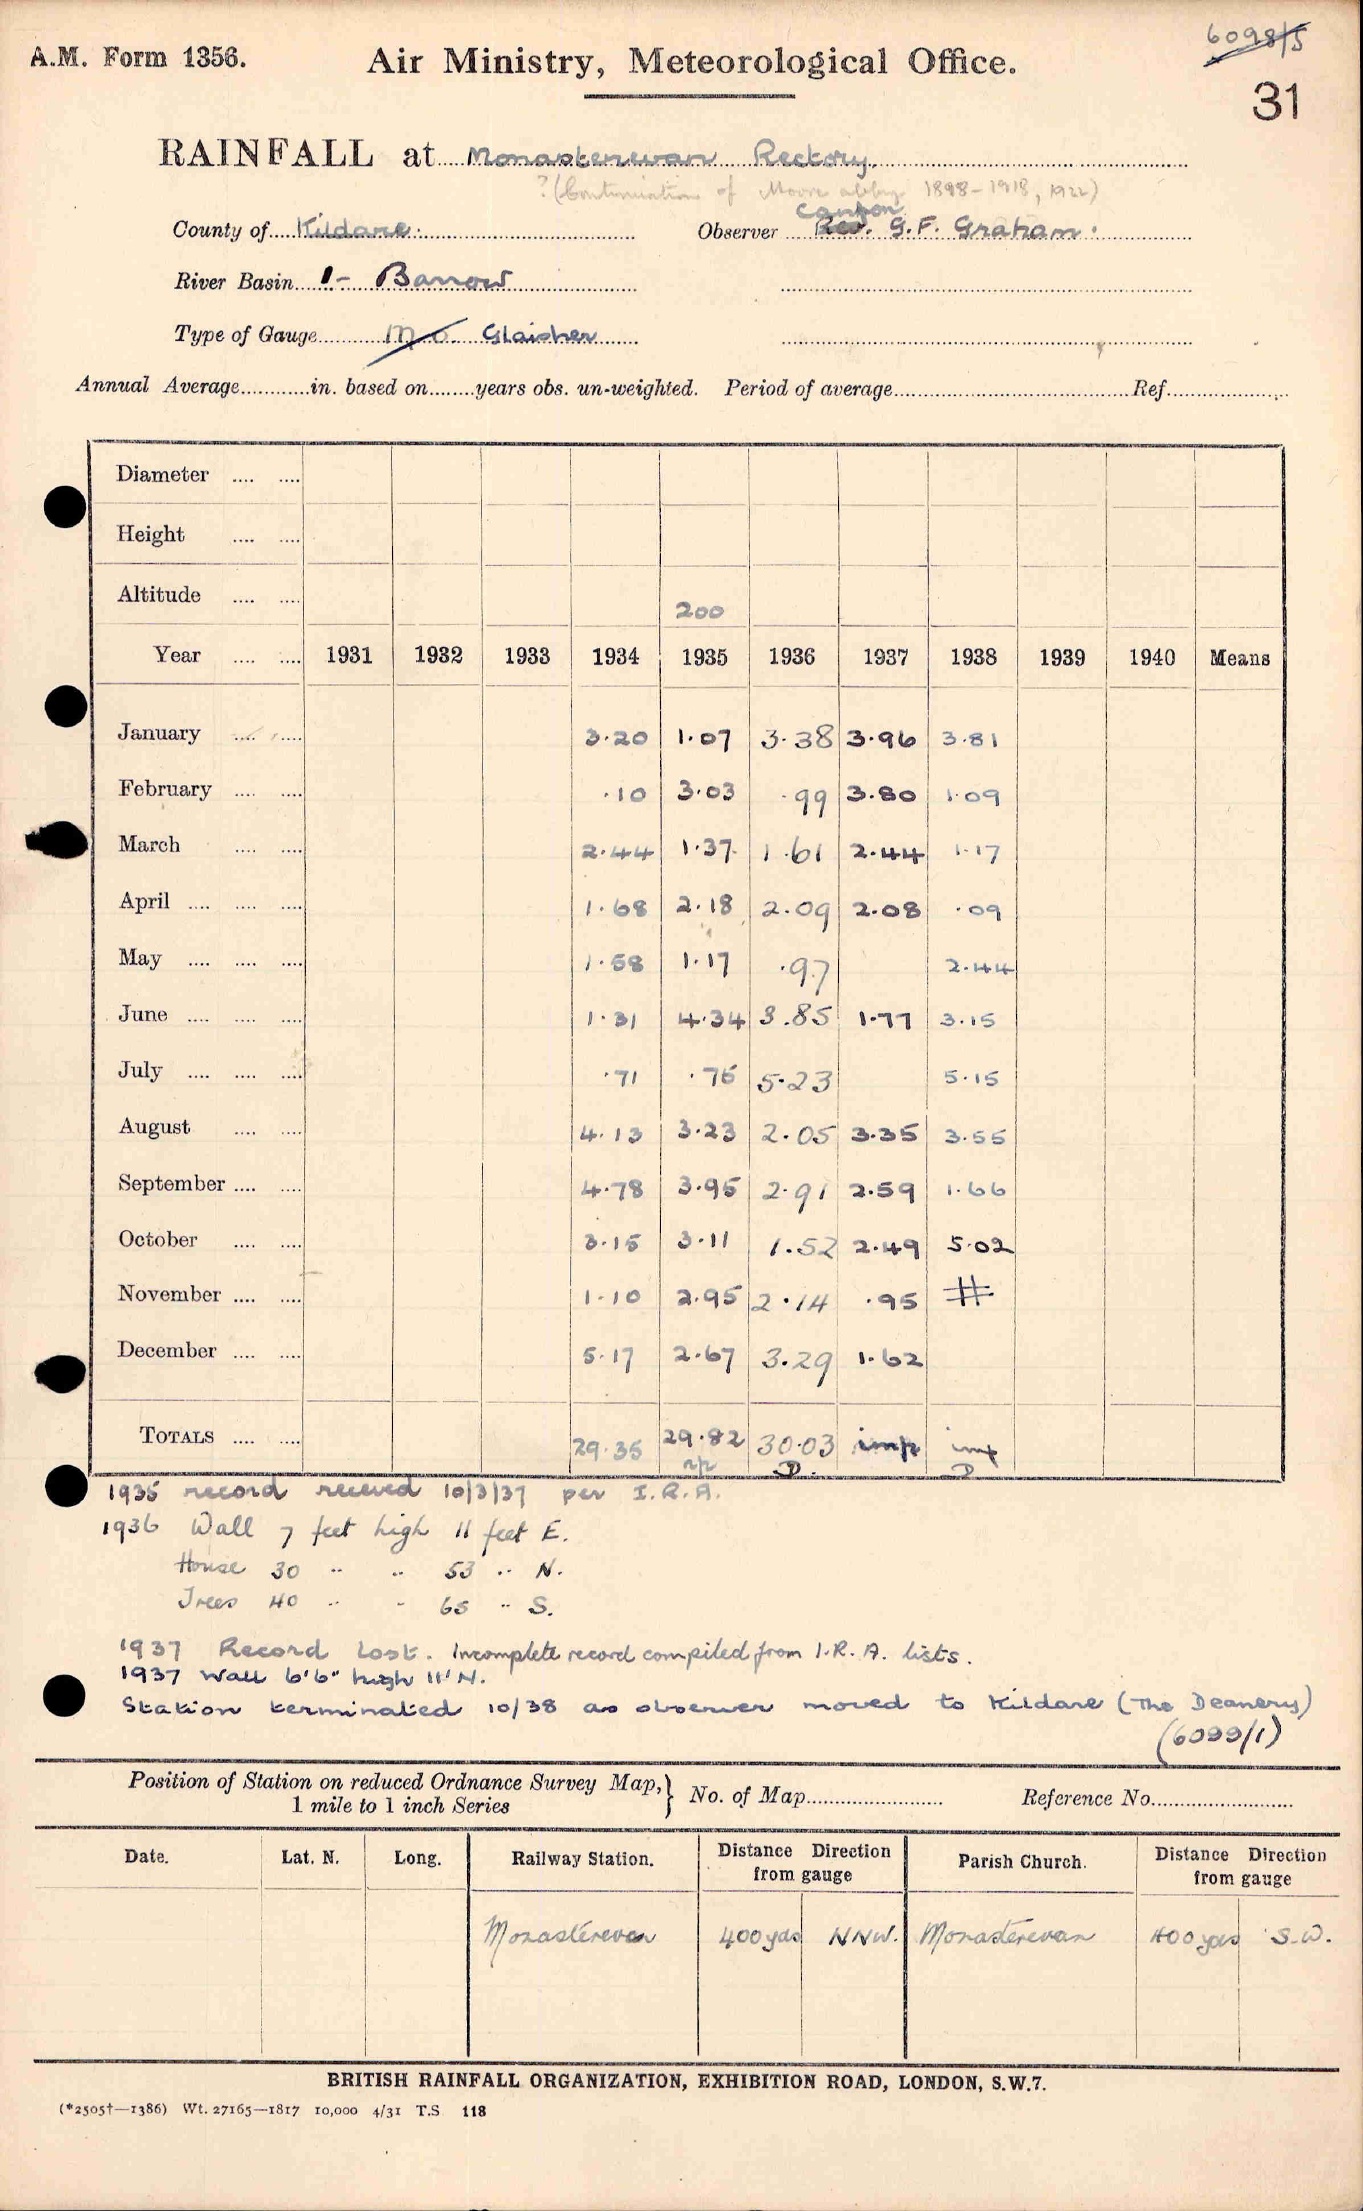 6098/5
A.M. Form 1356.
Air Ministry, Meteorological Office.
31
RAINFALL at Monasterevan Rectory.
?(Continuation of Moore abbey 1898-1918, 1922)
Canon
County of Kildare. Observer Rev. G.F. Graham.
River Basin 1- Barrow
Type of Gauge M.O. Glaisher
Annual Average in. based on years obs. un-weighted. Period of average Ref.
Diameter
Height
Altitude 200
Year 1931 1932 1933 1934 1935 1936 1937 1938 1939 1940 Means
January 3.20 1.07 3.38 3.96 3.81
February .10 3.03 .99 3.80 1.09
March 2.44 1.37 1.61 2.44 1.17
April 1.68 2.18 2.09 2.08 .09
May 1.58 1.17 .97 2.44
June 1.31 4.34 3.85 1.77 3.15
July .71 .75 5.23 5.15
August 4.13 3.23 2.05 3.35 3.55
September 4.78 3.95 2.91 2.59 1.66
October 3.15 3.11 1.52 2.49 5.02
November 1.10 2.95 2.14 .95 #
December 5.17 2.67 3.29 1.62
TOTALS 29.35 29.82 30.03 imp imp
np D. D
1935 record received 10/3/37 per I.R.A.
1936 Wall 7 feet high 11 feet E.
House 30 " " 53 " N.
Trees 40 " " 65 " S.
1937 Record Lost. Incomplete record compiled from I.R.A. lists.
1937 Wall 6'6" high 11' N.
Station terminated 10/38 as observer moved to Kildare (The Deanery)
(6099/1)
Position of Station on reduced Ordnance Survey Map,} No. of Map Reference No.
1 mile to 1 inch Series
Date. Lat. N. Long. Railway Station. Distance Direction from gauge Parish Church. Distance Direction from gauge
Monasterevan 400 yds NNW. Monasterevan 400 yds S.W.
BRITISH RAINFALL ORGANIZATION, EXHIBITION ROAD, LONDON, S.W.7.
(*2505†—1386) Wt. 27165—1817 10,000 4/31 T.S. 118